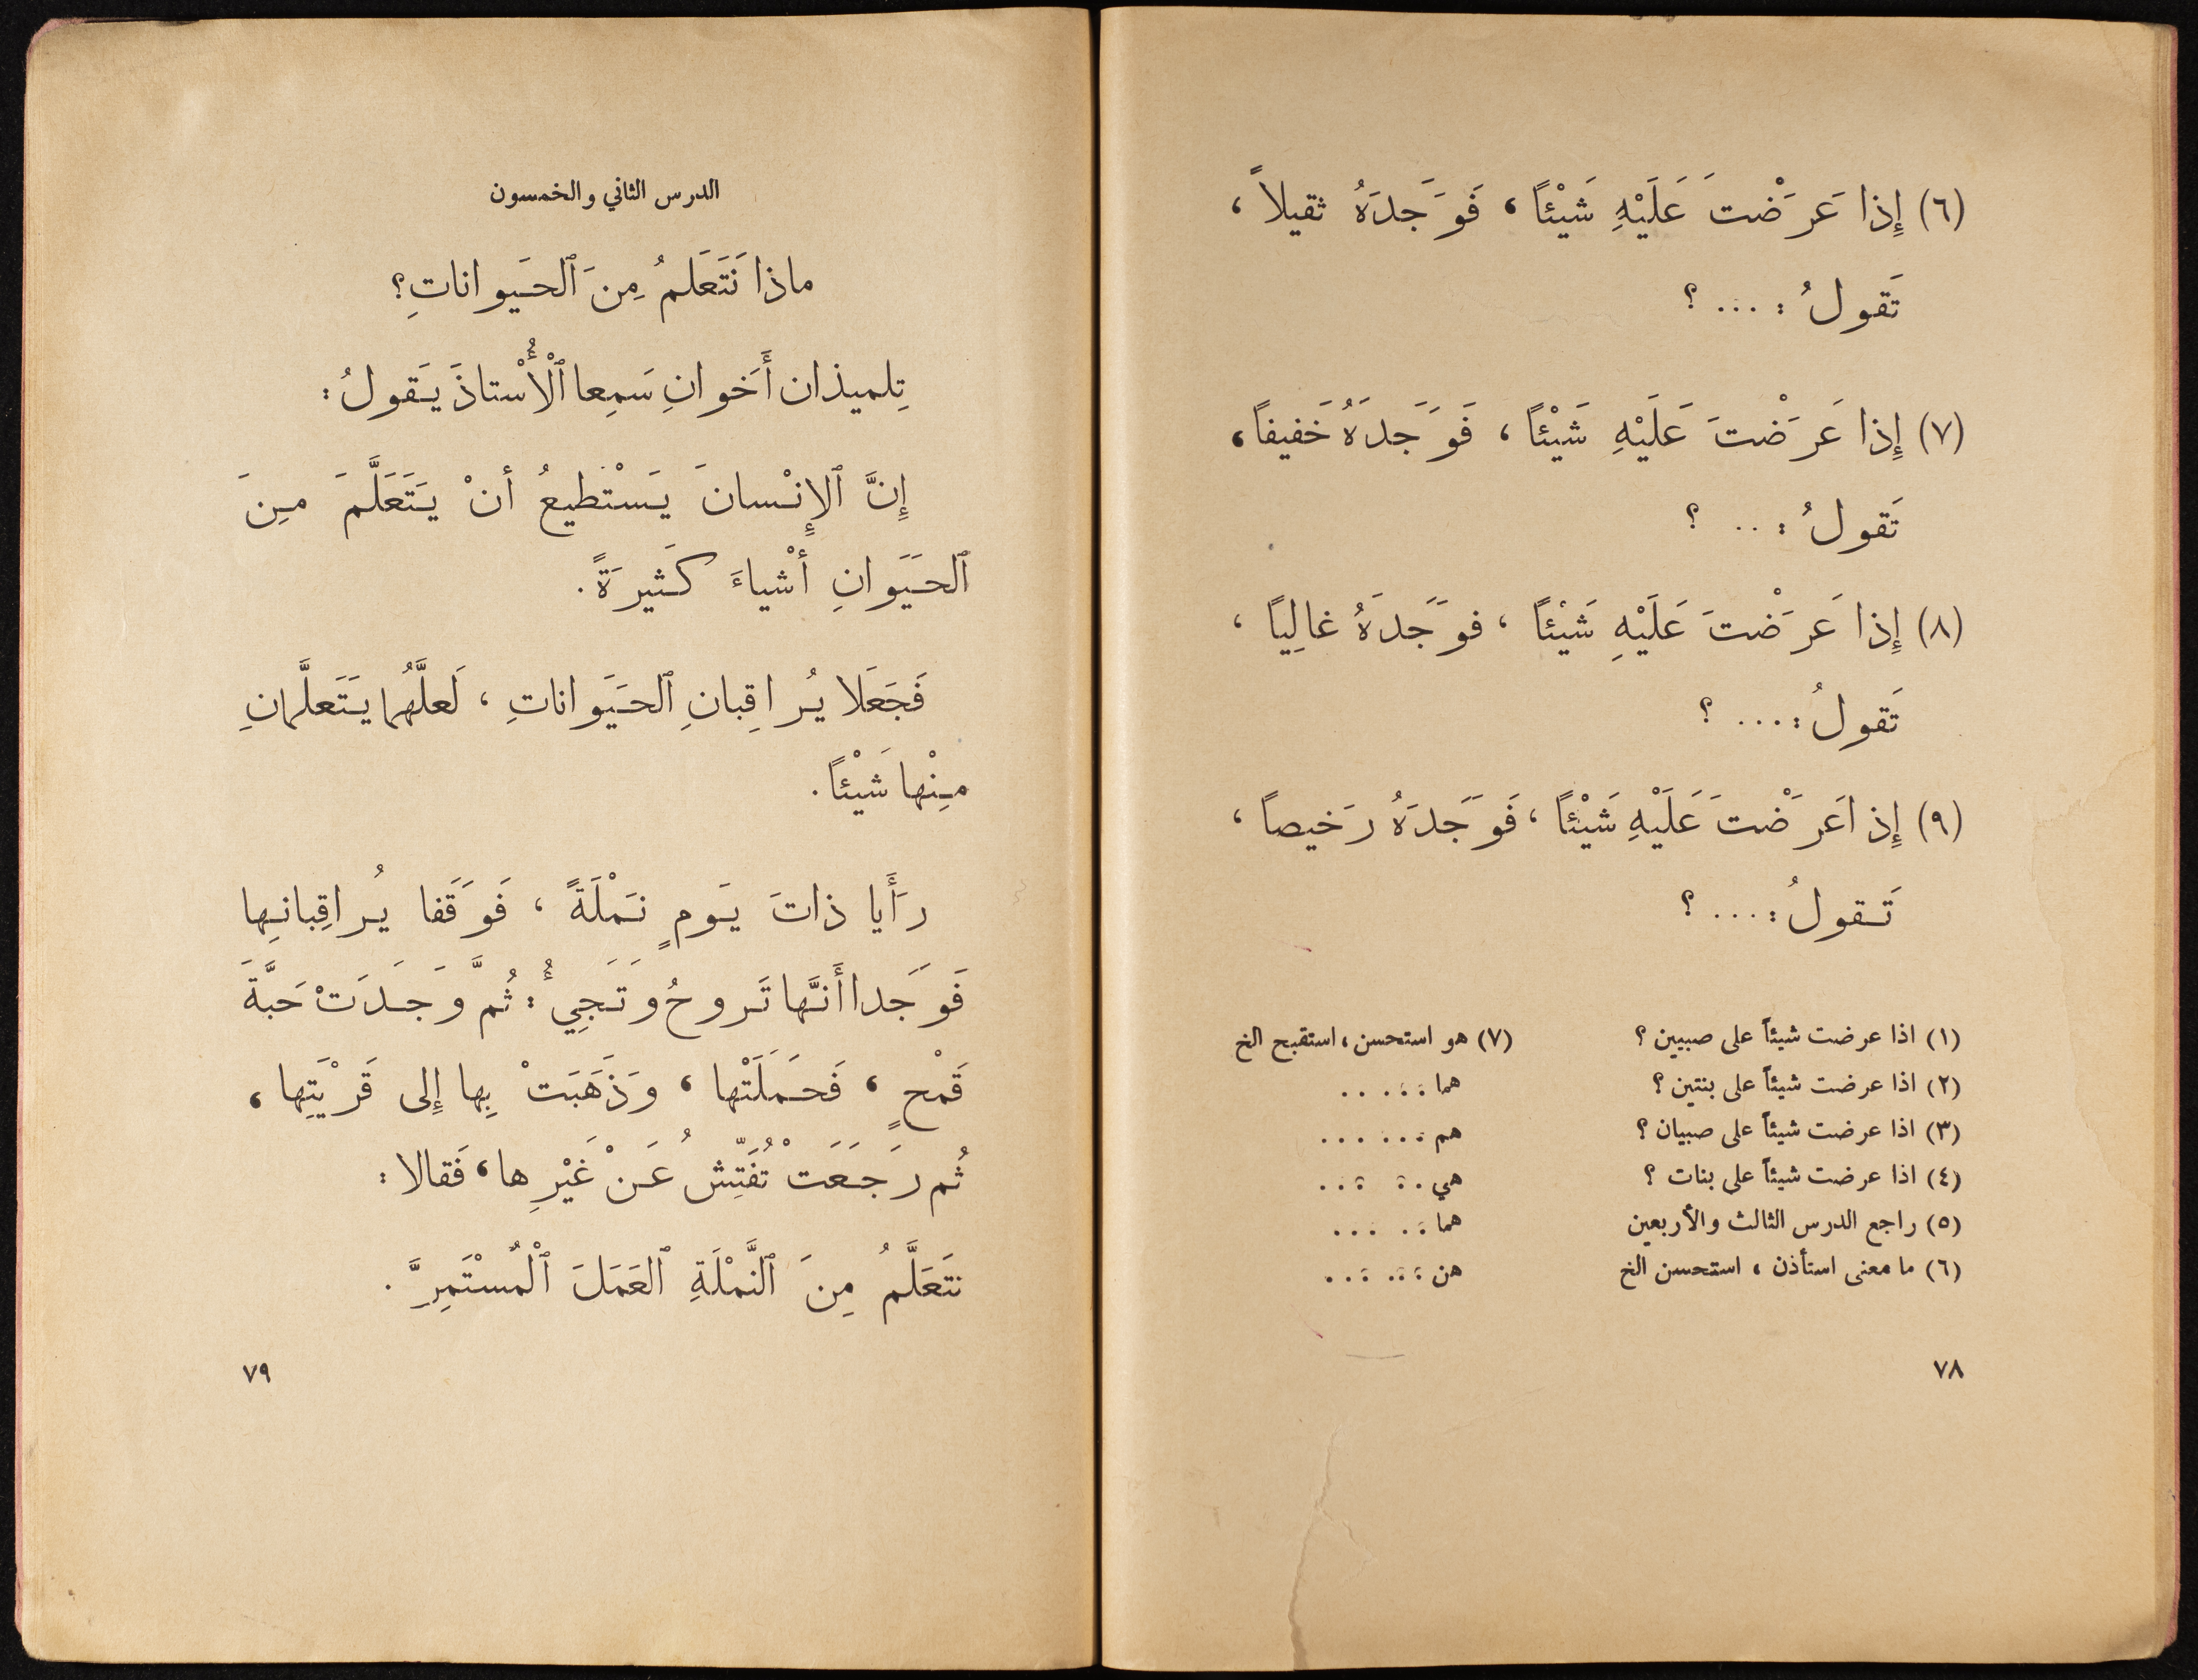 (٦) إِذا عَرَضْتَ عَلَيْهِ شَيْئاً ، فَوَجَدَهُ ثقيلاً ،
تَقولُ : ... ؟
(٧) إِذا عَرَضْتَ عَلَيْهِ شَيْئاً ، فَوَجَدَهُ خَفيفاً ،
تَقولُ : .. ؟
(٨) إِذا عَرَضْتَ عَلَيْهِ شَيْئاً ، فوَجَدَهُ غالِياً ،
تَقولُ : ... ؟
(٩) إِذا عَرَضْتَ عَلَيْهِ شَيْئاً ، فَوَجَدَهُ رَخيصاً ،
تَقولُ : ... ؟
(١) اذا عرضت شيئاً على صبيين ؟
(٢) اذا عرضت شيئاً على بنتين ؟
(٣) اذا عرضت شيئاً على صبيان ؟
(٤) اذا عرضت شيئاً على بنات ؟
(٥) راجع الدرس الثالث والأربعين
(٦) ما معنى استأذن ، استحسن الخ
(٧) هو استحسن ، استقبح الخ
هما : . : . . .
هم : . . . . .
هي . : : . .
هما : . . . .
هن : : . : . .
٧٨
الدرس الثاني والخمسون
ماذا نَتَعَلمُ مِنَ ٱلحَيواناتِ؟
تِلميذان أَخوانِ سَمِعا ٱلْأُسْتاذَ يَقولُ :
إِنَّ ٱلإِنْسانَ يَسْتطيعُ أنْ يَتَعَلَّمَ مِنَ
ٱلحَيَوانِ أشْياءَ كَثيرَةً .
فَجَعَلا يُراقِبانِ ٱلحَيَواناتِ ، لَعلَّهُما يَتَعلَّمانِ
مِنْها شَيْئاً .
رَأَيا ذاتَ يَومٍ نَمْلَةً ، فَوَقَفا يُراقِبانِها
فَوَجَدا أَنَّها تَروحُ وَتَجِيءُ : ثُمَّ وَجَدَتْ حَبَّةَ
قَمْحٍ ، فَحَمَلَتْها ، وَذَهَبَتْ بِها إِلى قَرْيَتِها ،
ثُم رَجَعَتْ تُفَتِّشُ عَنْ غَيْرِها ، فَقالا :
نتَعَلَّمُ مِنَ ٱلنَّمْلَةِ ٱلعَمَلَ ٱلْمُسْتَمِرَّ .
٧٩